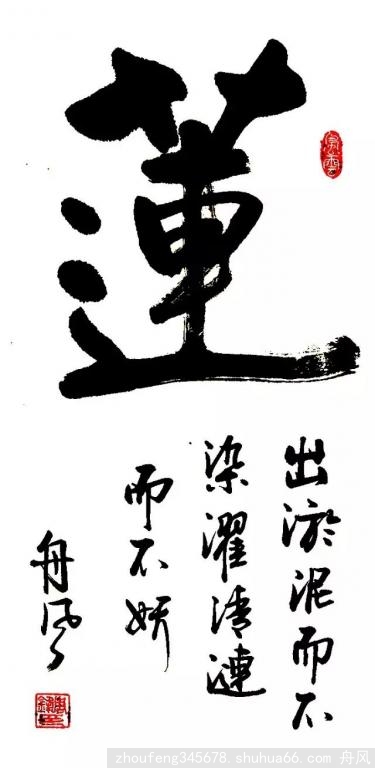 蓮
出淤泥而不
染濯清漣
而不妖
舟风
zhoufeng345678.shuhua66.com/舟风